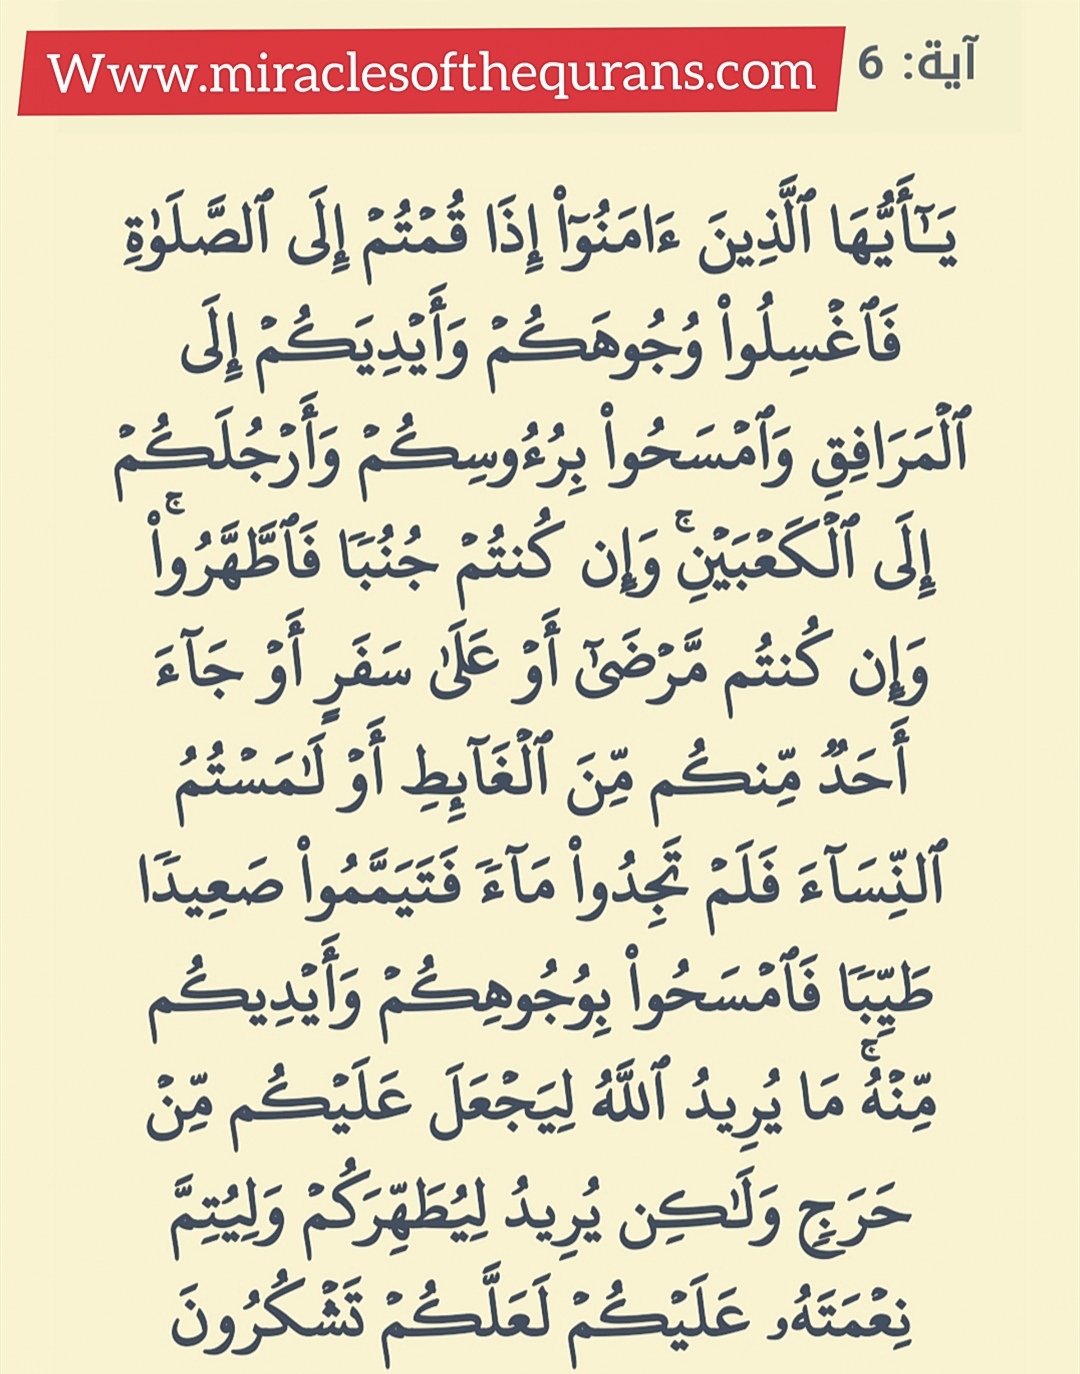 Www.miraclesofthequrans.com آية: 6
يَـٰٓأَيُّهَا ٱلَّذِينَ ءَامَنُوٓا۟ إِذَا قُمْتُمْ إِلَى ٱلصَّلَوٰةِ
فَٱغْسِلُوا۟ وُجُوهَكُمْ وَأَيْدِيَكُمْ إِلَى
ٱلْمَرَافِقِ وَٱمْسَحُوا۟ بِرُءُوسِكُمْ وَأَرْجُلَكُمْ
إِلَى ٱلْكَعْبَيْنِ ۚ وَإِن كُنتُمْ جُنُبًا فَٱطَّهَّرُوا۟ ۚ
وَإِن كُنتُم مَّرْضَىٰٓ أَوْ عَلَىٰ سَفَرٍ أَوْ جَآءَ
أَحَدٌ مِّنكُم مِّنَ ٱلْغَآئِطِ أَوْ لَـٰمَسْتُمُ
ٱلنِّسَآءَ فَلَمْ تَجِدُوا۟ مَآءً فَتَيَمَّمُوا۟ صَعِيدًا
طَيِّبًا فَٱمْسَحُوا۟ بِوُجُوهِكُمْ وَأَيْدِيكُم
مِّنْهُ ۚ مَا يُرِيدُ ٱللَّهُ لِيَجْعَلَ عَلَيْكُم مِّنْ
حَرَجٍ وَلَـٰكِن يُرِيدُ لِيُطَهِّرَكُمْ وَلِيُتِمَّ
نِعْمَتَهُۥ عَلَيْكُمْ لَعَلَّكُمْ تَشْكُرُونَ